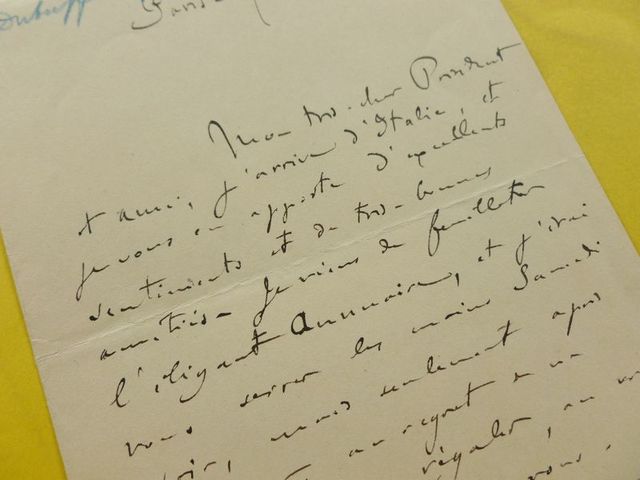 Mon très cher Président
et ami, j'arrive d'Italie, et
je vous en apporte d'excellents
sentiments et de très bonnes
amitiés. Je viens de feuilleter
l'élégant Annuaire, et j'irai
vous serrer les mains Samedi
soir, mais seulement après
au regret
régaler, au
vous.